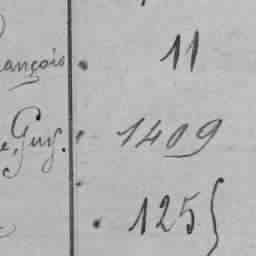 ançois. 11
e, Guy. 1409
125